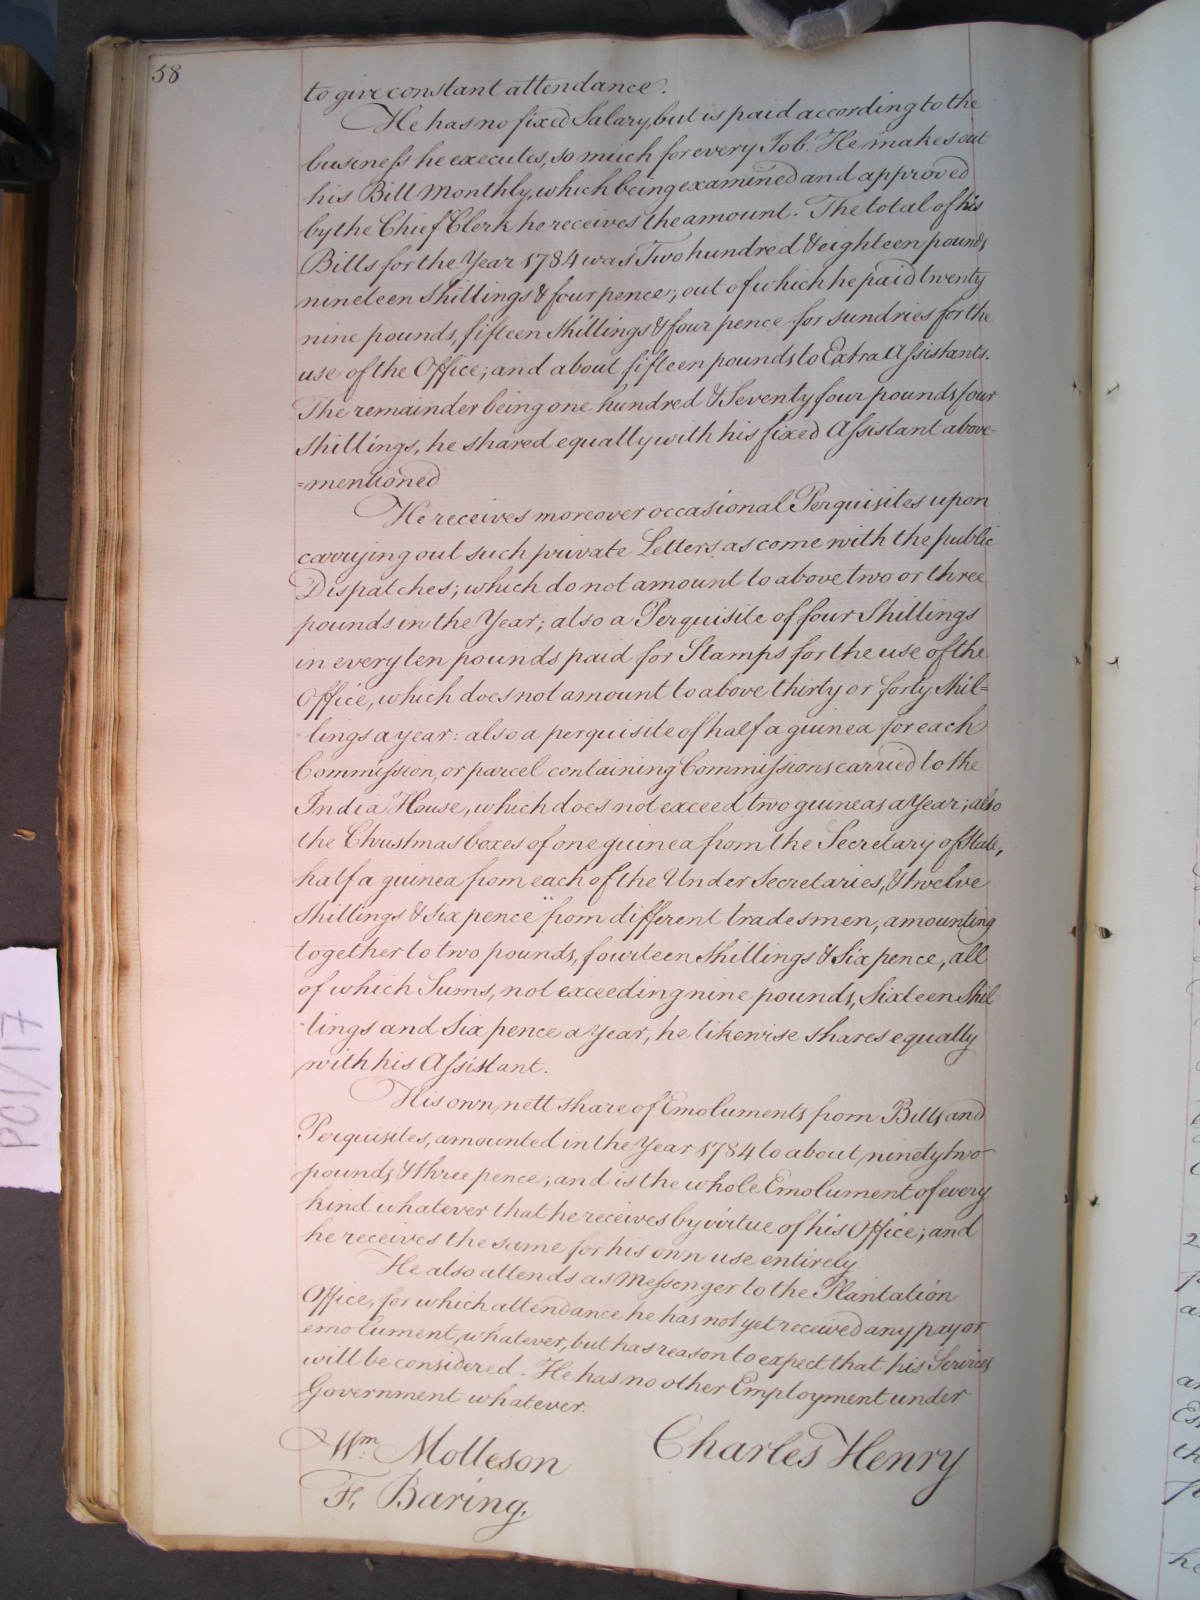 58
to give constant attendance.
He has no fixed Salary, but is paid according to the
business he executes, so much for every Job. He makes out
his Bill Monthly, which being examined and approved
by the Chief Clerk he receives the amount. The total of his
Bills for the Year 1784 was Two hundred & eighteen pounds
nineteen Shillings & four pence; out of which he paid twenty
nine pounds, fifteen Shillings & four pence for sundries for the
use of the Office; and about fifteen pounds to Extra Assistants.
The remainder being one hundred & Seventy four pounds four
Shillings, he shared equally with his fixed Assistant above=
=mentioned
He receives moreover occasional Perquisites upon
carrying out such private Letters as come with the public
Dispatches; which do not amount to above two or three
pounds in the Year; also a Perquisite of four Shillings
in every ten pounds paid for Stamps for the use of the
Office, which does not amount to above thirty or forty Shil=
-lings a year: also a perquisite of half a guinea for each
Commission, or parcel containing Commissions carried to the
India House, which does not exceed two guineas a Year; also
the Christmas boxes of one guinea from the Secretary of State,
half a guinea from each of the Under Secretaries, & twelve
Shillings & Six pence from different tradesmen, amounting
together to two pounds, fourteen Shillings & Six pence, all
of which Sums, not exceeding nine pounds, Sixteen Shil-
-lings and Six pence a Year, he likewise shares equally
with his Assistant.
His own nett share of Emoluments from Bills and
Perquisites, amounted in the Year 1784 to about ninety two
pounds & three pence; and is the whole Emolument of every
kind whatever that he receives by virtue of his Office; and
he receives the same for his own use entirely.
He also attends as Messenger to the Plantation
Office, for which attendance he has not yet received any pay or
emolument, whatever, but has reason to expect that his Services
will be considered. He has no other Employment under
Government whatever.
Wm. Molleson Charles Henry
F. Baring.
PC1/17